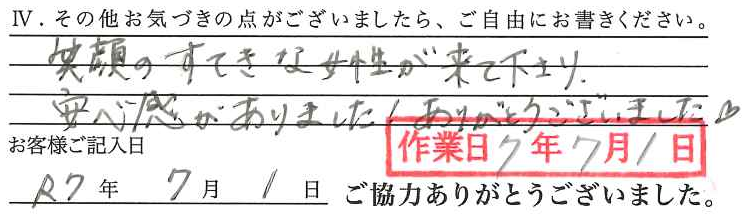 Ⅳ．その他お気づきの点がございましたら、ご自由にお書きください。
笑顔のすてきな女性が来て下さり、
安心感がありました！ありがとうございました♡
お客様ご記入日
作業日 7年 7月 1日
R7年 7月 1日 ご協力ありがとうございました。